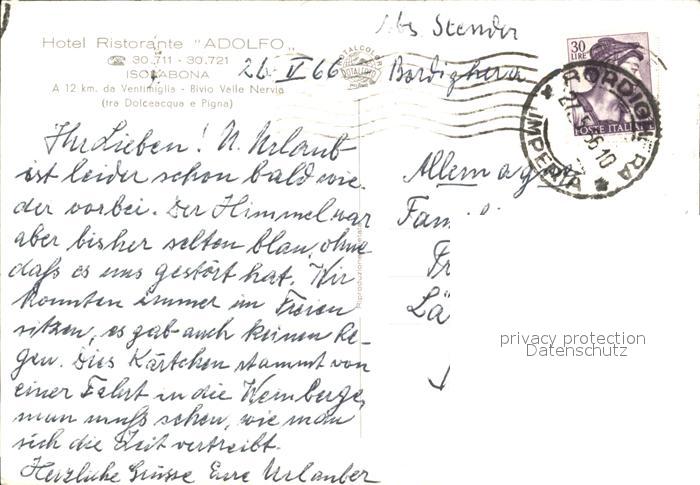 Hotel Ristorante "ADOLFO"
☎ 30.711 - 30.721
ISOLABONA
A 12 km. da Ventimiglia - Bivio Valle Nervia
(tra Dolceacqua e Pigna)
26 V 66
Stender
Bordighera
30
LIRE
POSTE ITALIANE
BORDIGHERA
IMPERIA
Ihr Lieben! U. Urlaub
ist leider schon bald wie-
der vorbei. Der Himmel war
aber bisher selten blau, ohne
daß es uns gestört hat. Wir
konnten immer im Freien
sitzen, es gab auch keinen Re-
gen. Dies Kärtchen stammt von
einer Fahrt in die Weinberge,
man muß sehen, wie man
sich die Zeit vertreibt.
Herzliche Grüsse Eure Urlauber
Allemagna
Fam.
Fr
Lä
privacy protection
Datenschutz